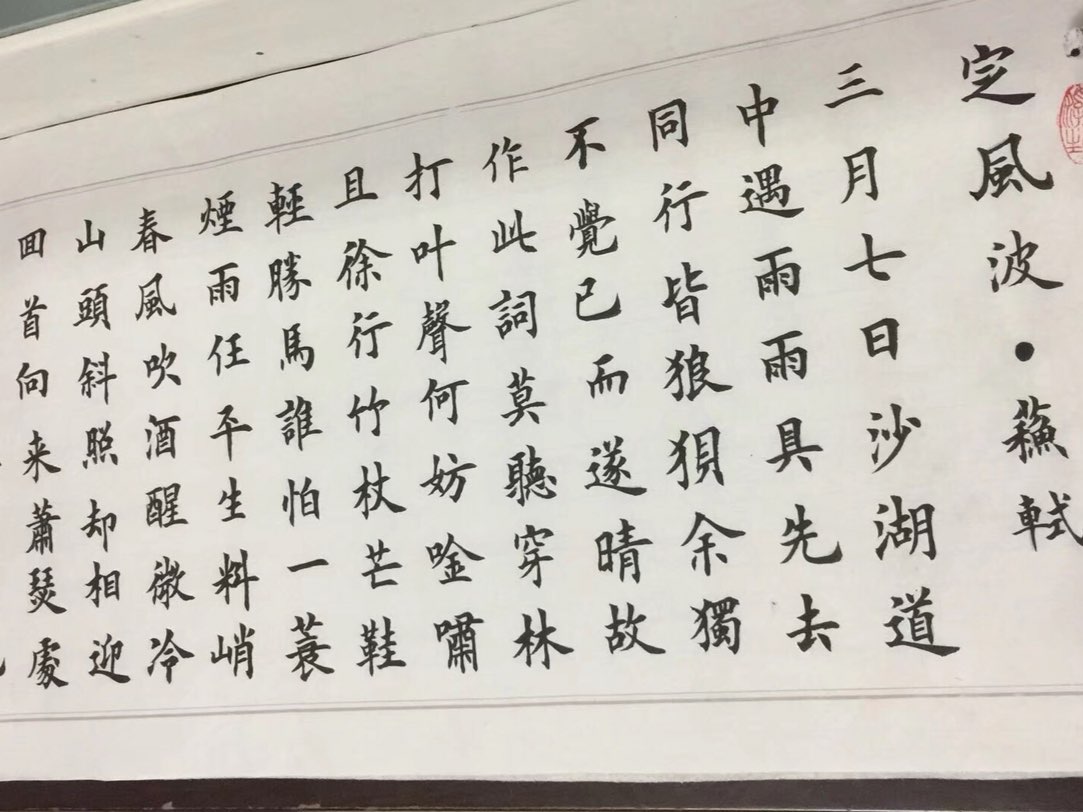 定風波·蘓軾
三月七日沙湖道
中遇雨雨具先去
同行皆狼狽余獨
不覺已而遂晴故
作此詞莫聽穿林
打叶聲何妨唫嘯
且徐行竹杖芒鞋
輕勝馬誰怕一蓑
煙雨任平生料峭
春風吹酒醒微冷
山頭斜照却相迎
回首向来蕭瑟處